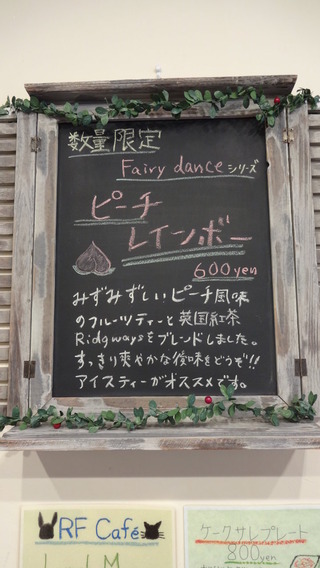 数量限定
Fairy danceシリーズ
ピーチ
レインボー
600yen
みずみずしいピーチ風味
のフルーツティーと英国紅茶
Ridgwaysをブレンドしました。
すっきり爽やかな後味をどうぞ!!
アイスティーがオススメです。
RF Café
ケークサレプレート
800yen